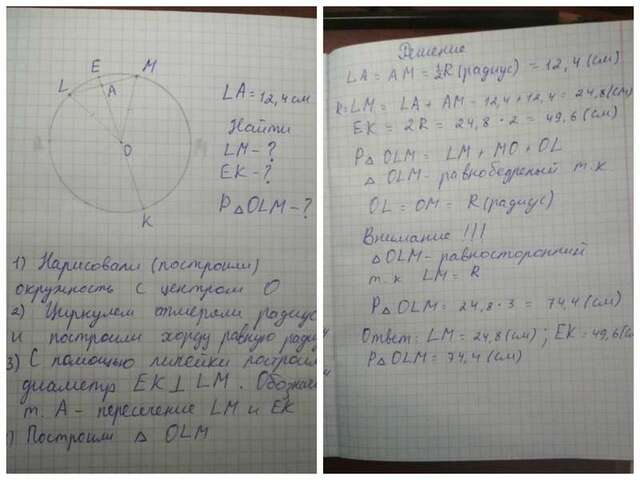 E
M
L
A
O
K
LA = 12,4 см
Найти
LM - ?
EK - ?
P△OLM - ?
1) Нарисовали (построили)
окружность с центром О
2) Циркулем отмеряли радиус
и построили хорду равную
3) С помощью линейки построили
диаметр EK ⊥ LM.
т. А - пересечение LM и EK
) Построили △ OLM
Решение
LA = AM = ½R (радиус) = 12,4 (см)
R = LM = LA + AM = 12,4 + 12,4 = 24,8 (см)
EK = 2R = 24,8 · 2 = 49,6 (см)
P△ OLM = LM + MO + OL
△ OLM - равнобедреный т. к
OL = OM = R (радиус)
Внимание !!!
△OLM - равносторонний
т. к LM = R
P△OLM = 24,8 · 3 = 74,4 (см)
Ответ: LM = 24,8 (см) ; EK = 49,6 (см
P△OLM = 74,4 (см)